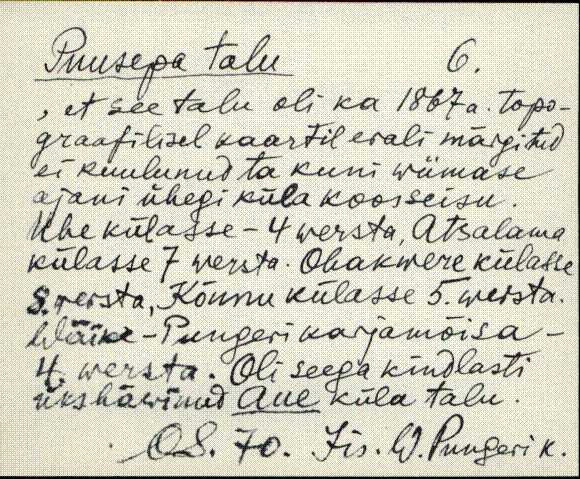 Puusepa talu 6.
, et see talu oli ka 1867a. topo-
graafilisel kaartil erali märgitud
ei kuulunud ta kuni wiimase
ajani ühegi küla koosseisu.
Uhe külasse - 4 wersta, Atsalama
külasse 7 wersta. Ohakwere külasse
8. wersta, Kõnnu külasse 5. wersta.
Wäike-Pungeri karjamõisa -
4. wersta. Oli seega kindlasti
ükshäwinud Aue küla talu.
OS. 70. Jis. W. Pungeri k.